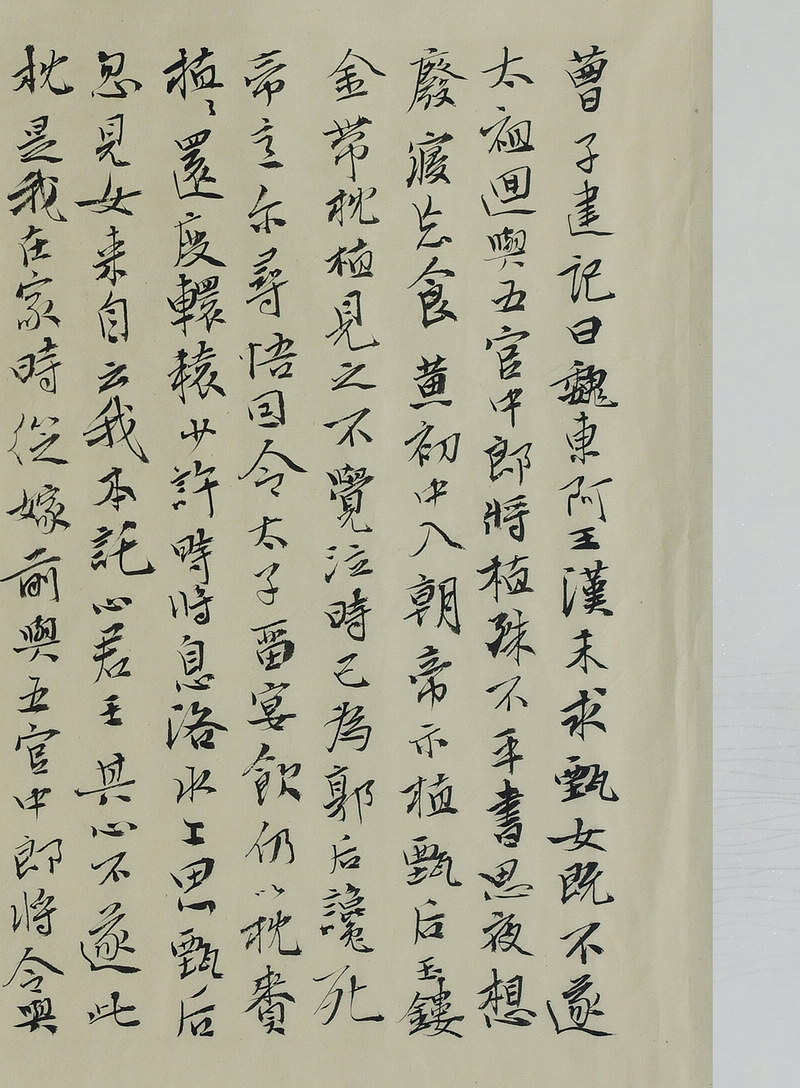 曹子建記曰魏東阿王漢末求甄女既不遂
太祖迴與五官中郎將植殊不平晝思夜想
廢寢忘食黃初中入朝帝示植甄后玉鏤
金帶枕植見之不覺泣時已為郭后讒死
帝意尒尋悟因令太子留宴飲仍以枕賚
植〻還度轘轅少許時將息洛水上思甄后
忽見女來自云我本託心君王其心不遂此
枕是我在家時從嫁前與五官中郎將今與